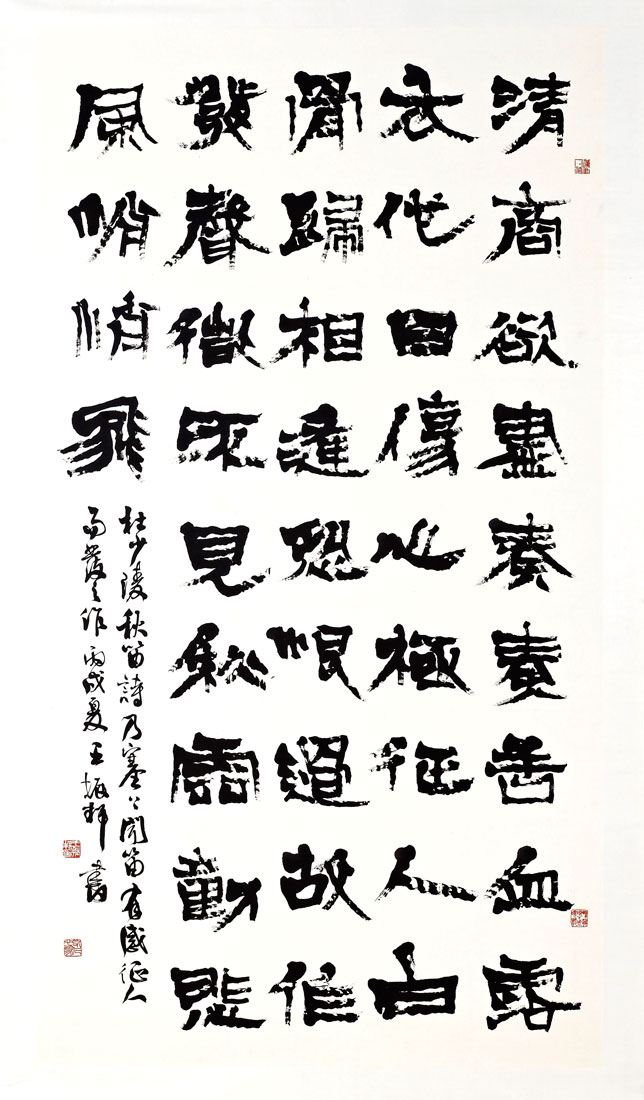 清商欲盡奏奏苦血霑
衣他日傷心極征人白
骨歸相逢恐恨過故作
發聲微不見秋雲動悲
風悄悄飛
杜少陵秋笛詩乃塞上聞笛有感征人
而發之作丙戌夏王書